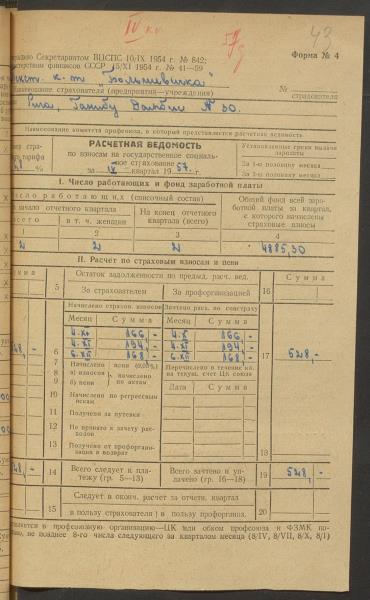 IV кв.
57
Форма № 4
Секретариатом ВЦСПС 10/IX 1954 г. № 842;
финансов СССР 15/XI 1954 г. № 41—59
к. т. „Большевичка"
страхователя (предприятия—учреждения)
№
страхователя
Рига,
№ 30.
Наименование комитета профсоюза, в который представляется расчетная ведомость
тарифа
%
РАСЧЕТНАЯ ВЕДОМОСТЬ
по взносам на государственное социаль-
ное страхование
за IV квартал 1957 г.
Установленные сроки выдачи зарплаты
За 1-ю половину месяца
За 2-ю половину месяца
I. Число работающих и фонд заработной платы
Число работающих (списочный состав)
начало отчетного квартала
всего
в т. ч. женщин
На конец отчетного квартала (всего)
Общий фонд всей заработной платы за квартал, с которого начислены страховые взносы
1 2 3 4
2 2 2 4885,30
II. Расчет по страховым взносам и пени
Сумма
Остаток задолженности по предыд. расч. вед.
Сумма
5 За страхователем За профорганизацией 16
Начислено страхов. взносов
Месяц Сумма
Месяц Сумма
166,- 4.X 166,-
4.XI 194,- 4.XI 194,-
6.XII 168,- 6.XII 168,-
528,- 6 17 528,-
7 Начислено пени
8 а) взносов начислено
9 б) пени по актам
Перечислено в течение кв.
на текущ. счет ЦК союза
Дата Сумма
10 Начислено по регрессным искам
11 Получено за путевки
12 Не принято к зачету расходов
13 Получено от профорганизации в возврат
18
14 Всего следует к платежу (гр. 5—13)
Всего зачтено и уплачено (гр. 16—18) 19 528,-
Следует в оконч. расчет за отчетн. квартал
15 в пользу страхователя в пользу профорганиз. 20
в профсоюзную организацию—ЦК или обком профсоюза к ФЗМК по-
но, не позднее 8-го числа следующего за кварталом месяца (8/IV, 8/VII, 8/X, 8/I)